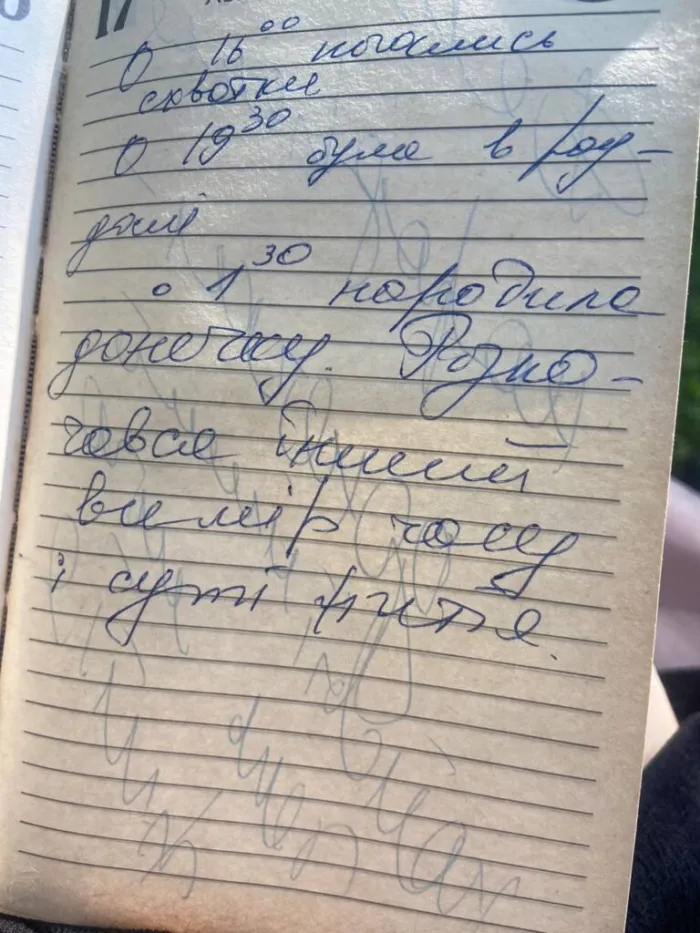 17
О 16⁰⁰ почались
схватки
О 19³⁰ була в роу-
домі
о 1³⁰ народила
донечку. Розпо-
чався інший
вимір часу
і суті життя.